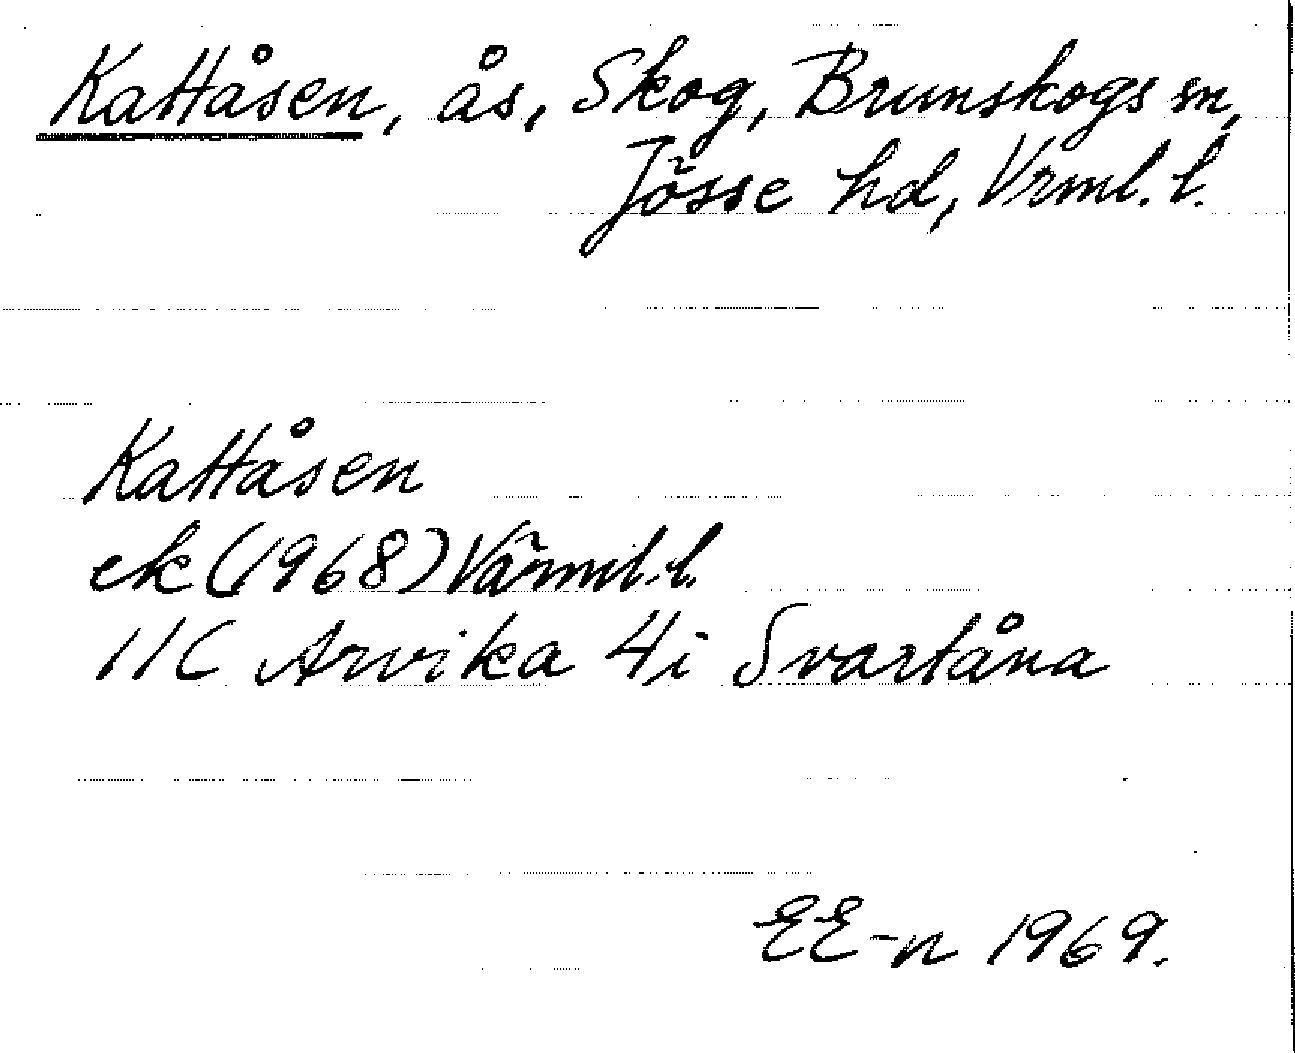 Kattåsen, ås, Skog, Brunskogs sn,
Jösse hd, Vrml. l.
Kattåsen
ek (1968) Värml. l.
11C Arvika 4i Svartåna
EE-n 1969.